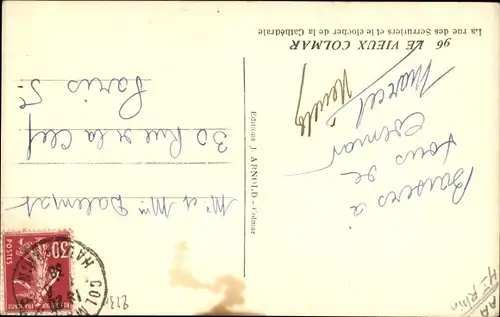 96 LE VIEUX COLMAR
La rue des Serruriers et le clocher de la Cathédrale
Baisers à
tous de
Colmar
Marcel
Editions J. ARNOLD - Colmar
Mr et Mme Dalemat
30 Rue de la Clef
Paris 5e
POSTES
30c
COLMAR
2130
AA
Ht Rhin